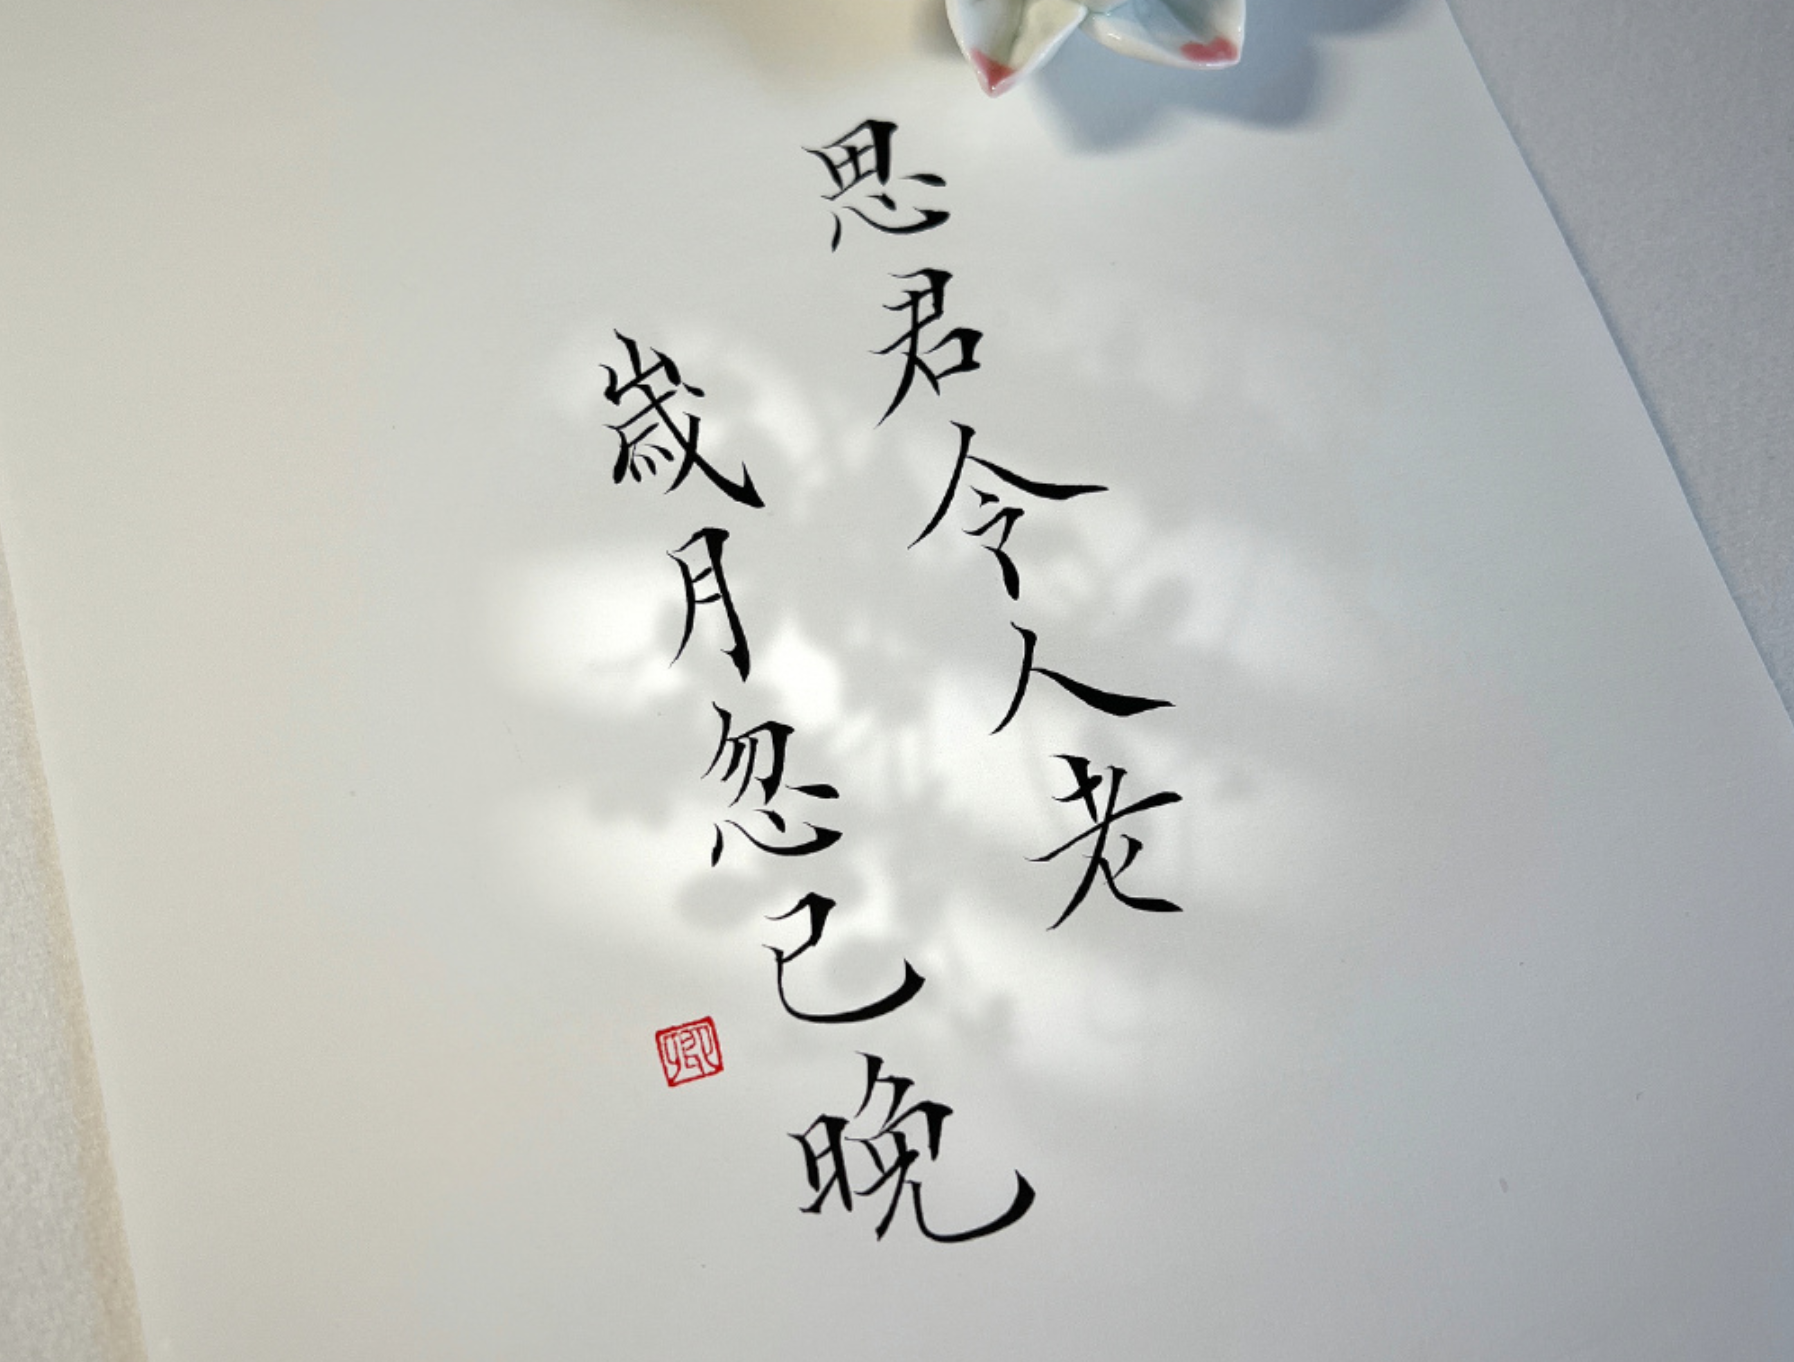 思君令人老
歲月忽已晚
卿